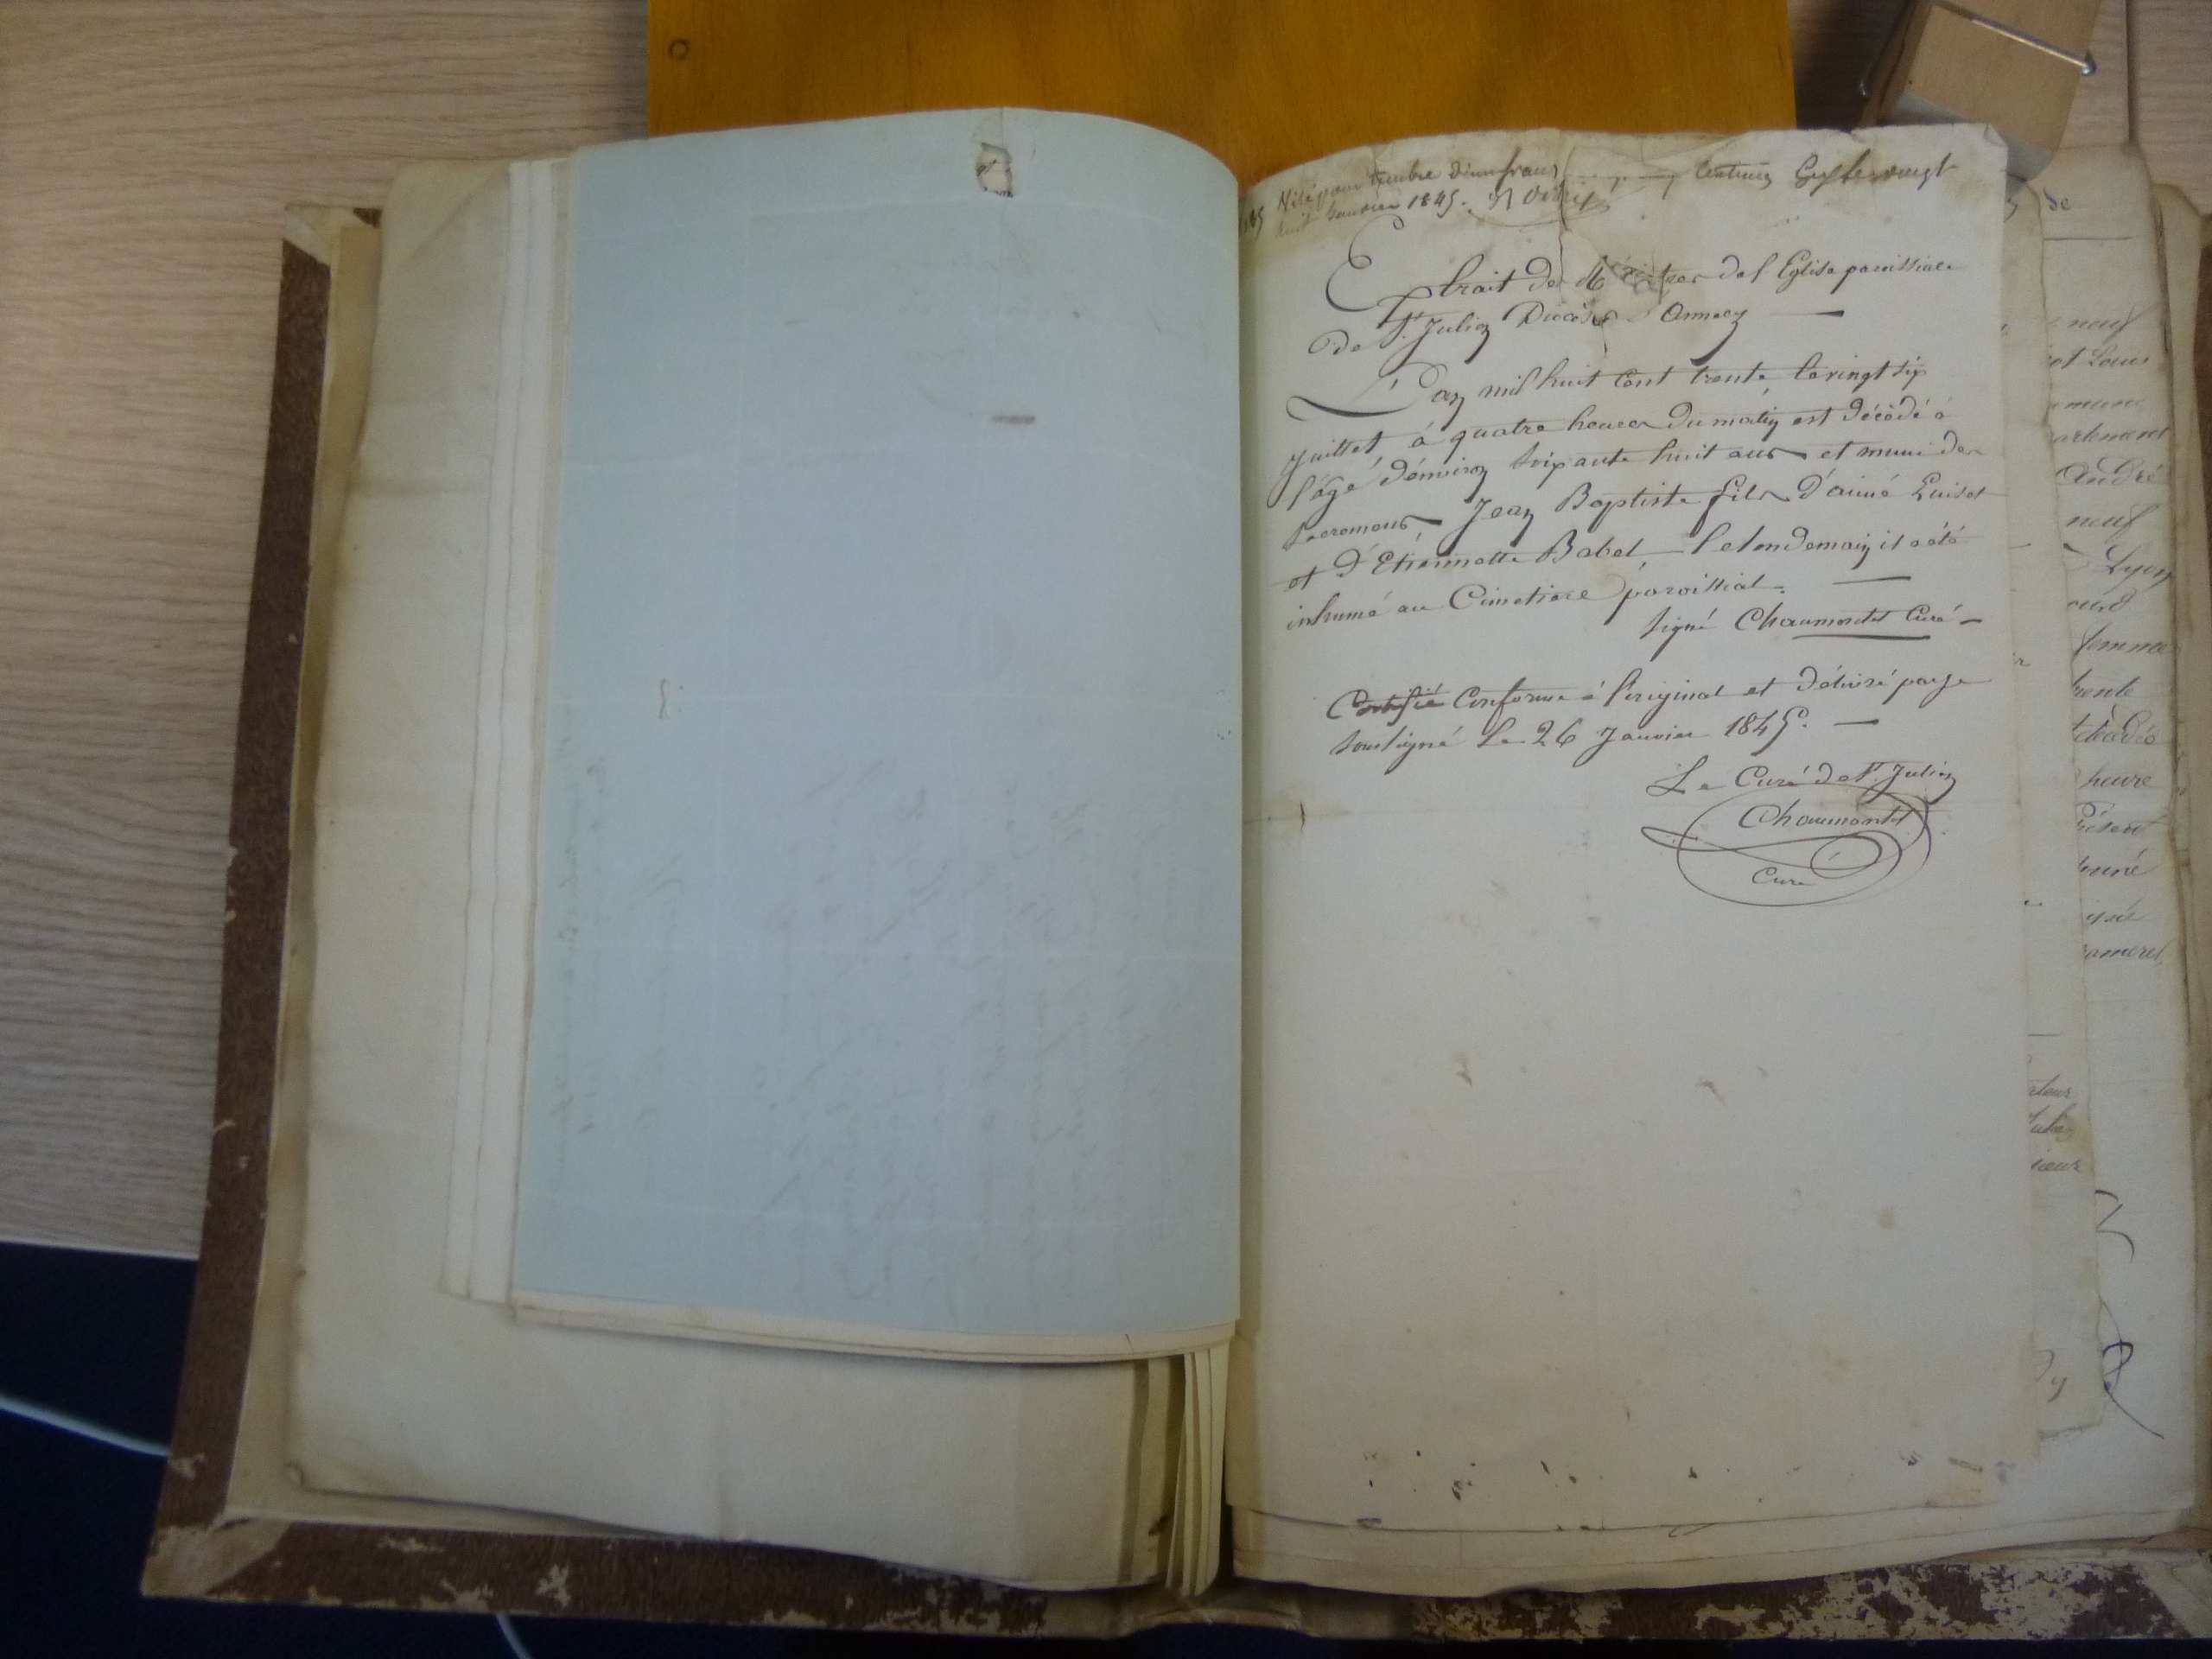 Visé pour timbre d'un franc centimes Gex le vingt
huit Janvier 1845.
Extrait des Régistres de l'Eglise paroissiale
de St. Julien Diocèse d'Annecy —
L'an mil huit Cent trente, le vingt six
juillet à quatre heures du matin est décèdé à
l'âge d'environ soixante huit ans et muni des
sacremens Jean Baptiste fils d'aimé
et d'Etiennette Babel le lendemain il a été
inhumé au Cimetiere paroissial. —
signé Chaumontet Curé —
Certifié Conforme à l'original et délivré par je
soussigné le 26 Janvier 1845. —
Le Curé de St. Julien
Chaumontet
Curé
de
neuf
André
neuf
Lyon
femme
trente
heure